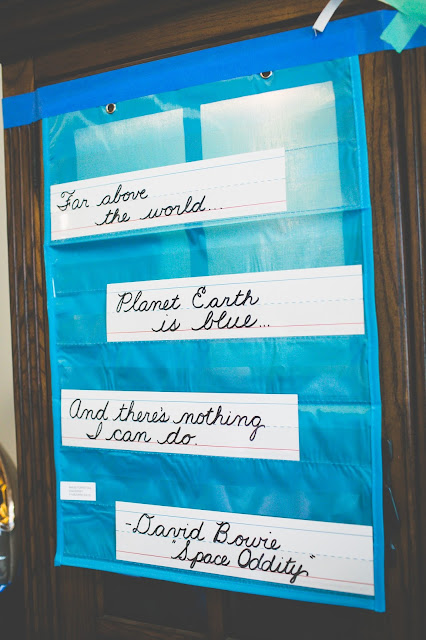 Far above
the world...
Planet Earth
is blue...
And there's nothing
I can do.
-David Bowie
"Space Oddity"